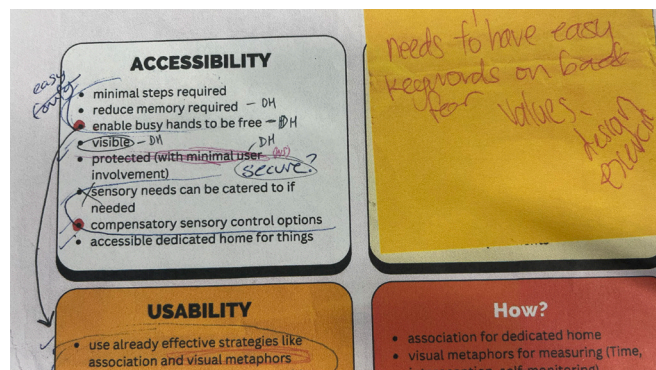 ACCESSIBILITY
easy
minimal steps required
reduce memory required - DH
enable busy hands to be free - DH
visible - DH
DH
protected (with minimal user
involvement)
secure?
sensory needs can be catered to if
needed
compensatory sensory control options
accessible dedicated home for things
needs to have easy
keywords on back
for values.
design
USABILITY
use already effective strategies like
association and visual metaphors
How?
association for dedicated home
visual metaphors for measuring (Time,